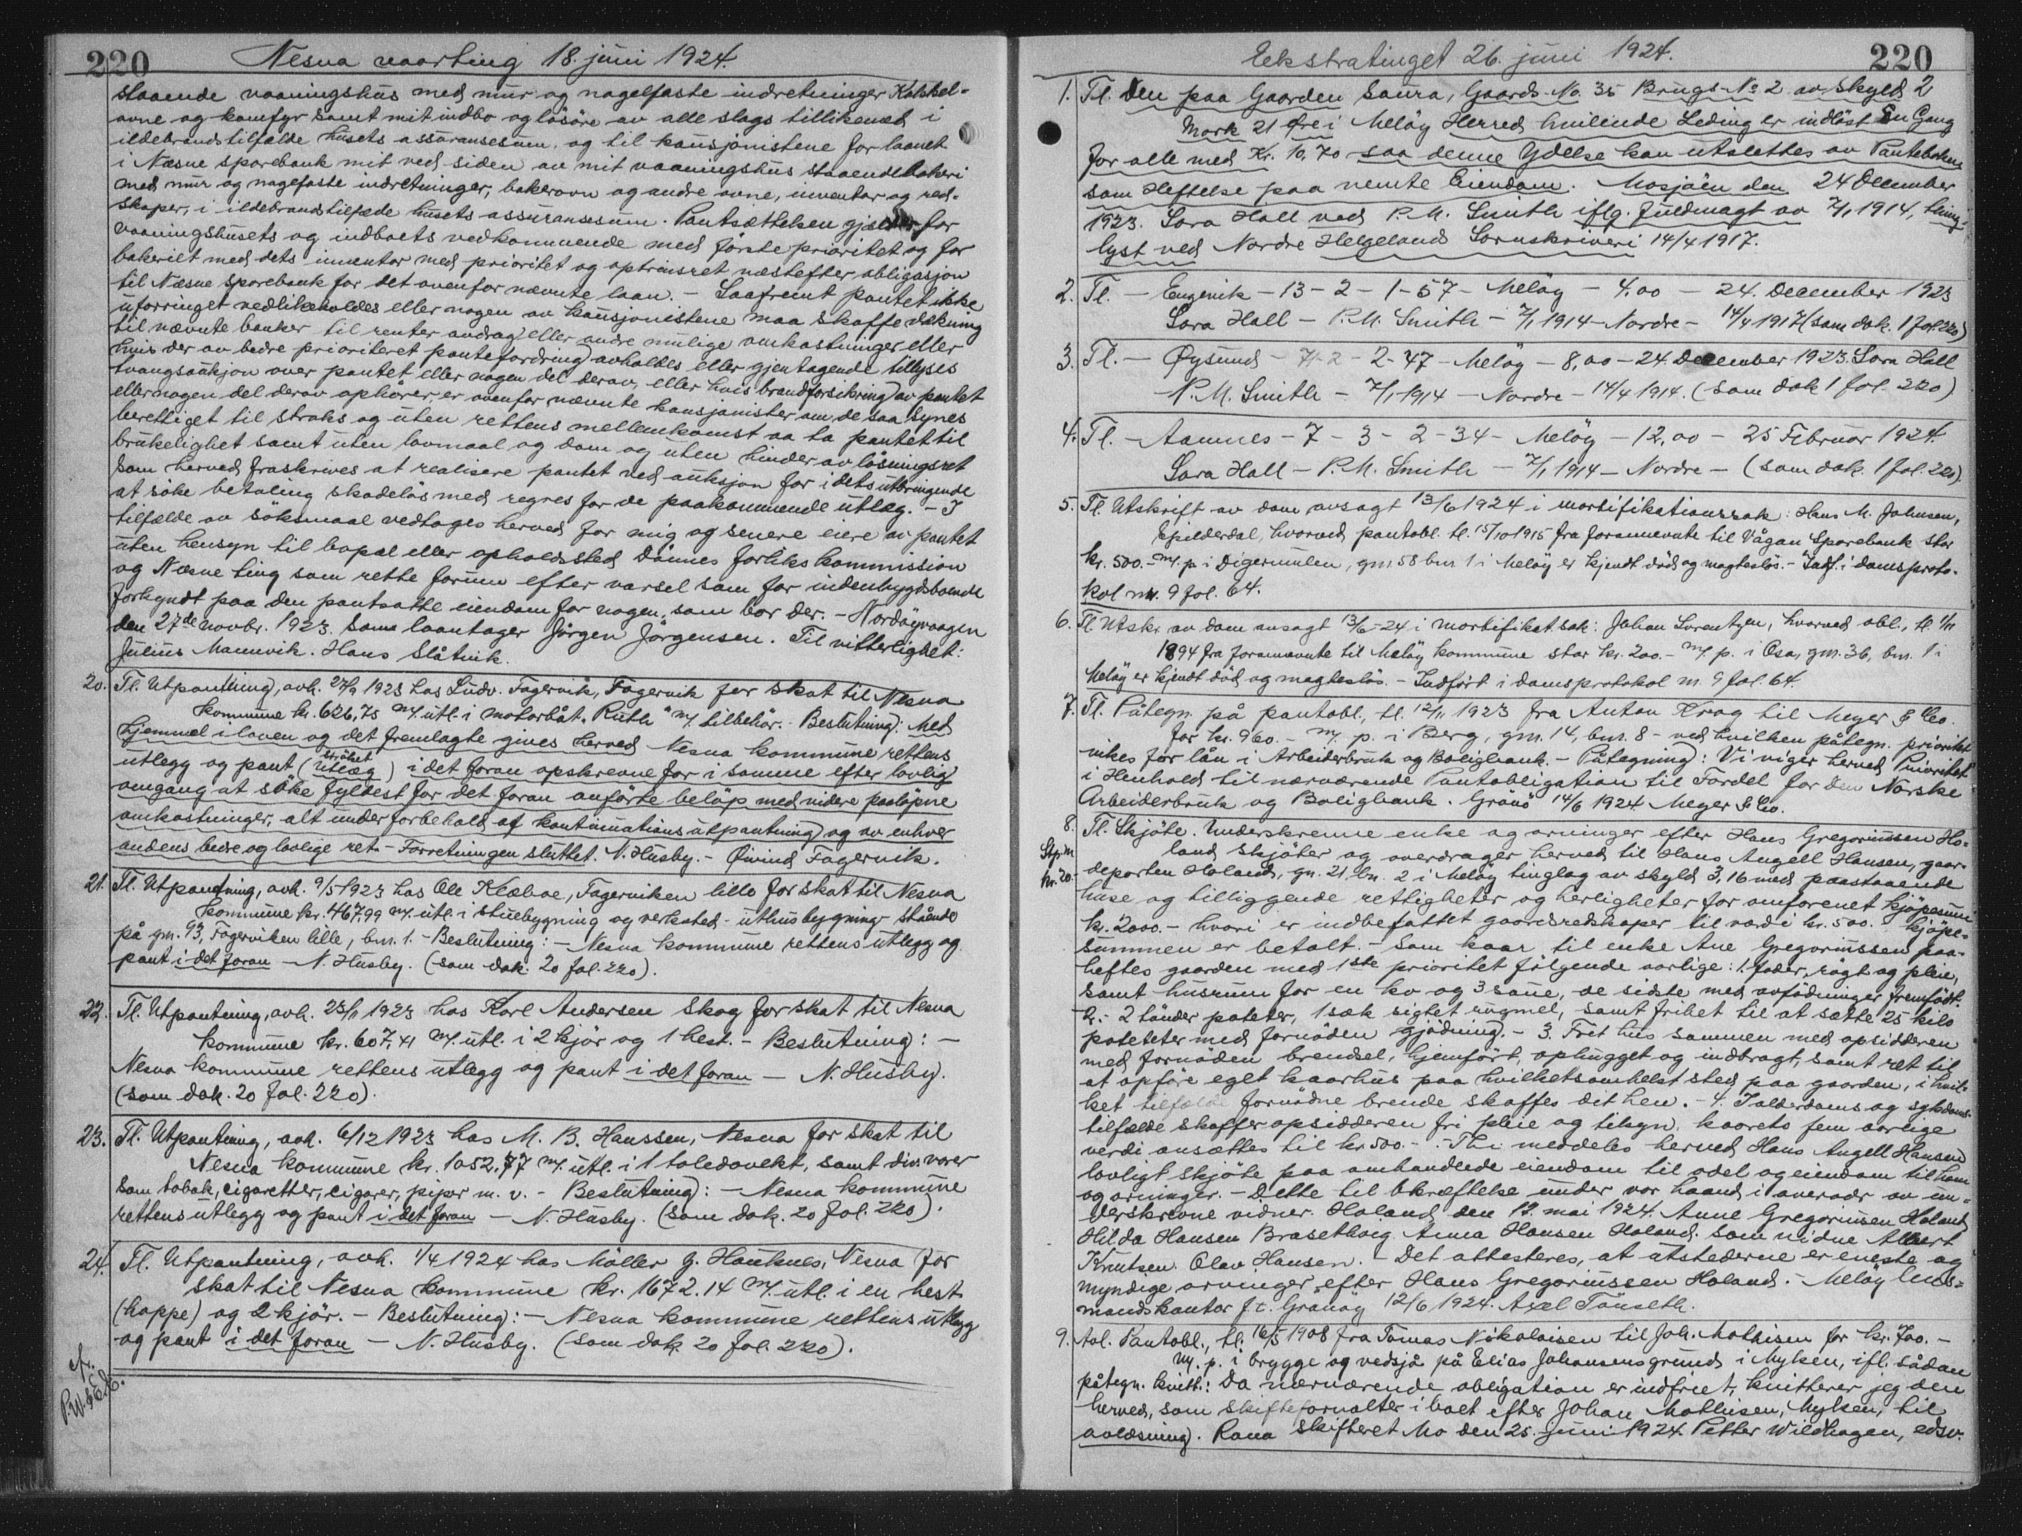 220 Nesna vaarting 18. juni 1924.
staaende vaaningshus med mur og nagelfaste indretninger Kakkel-
ovne og komfyr samt mit indbo og løsøre av alle slags tillikemed i
ildebrandstilfælde husets assuransesum. og til kausjonistene for laanet
i Næsne sparebank mit ved siden av mit vaaningshus staaende bakeri
med mur og nagelfaste indretninger, bakerovn og andre ovne, inventar og red-
skaper, i ildebrandstilfælde husets assuransesum. Pantsættelsen gjælder for
vaaningshusets og indboets vedkommende med første prioritet og for
bakeriet med dets inventar med prioritet og optrinsret næstefter obligasjon
til Næsne sparebank for det ovenfor nævnte laan. - Saafremt pantet ikke
uforringet vedlikeholdes eller nogen av kausjonistene maa skaffe dækning
til nævnte banker til renter avdrag eller andre mulige omkostninger eller
hvis der av bedre prioriteret pantefordring avholdes eller gjentagende tillyses
tvangsauksjon over pantet eller nogen del derav, eller hvis brandforsikring av pantet
eller nogen del derav ophører, er ovenfor nævnte kausjonister om de saa synes
berettiget til straks og uten rettens mellemkomst aa ta pantet til
brukelighet samt uten lovmaal og dom og uten hinder av løsningsret
som herved fraskrives at realisere pantet ved auksjon for i dets utbringende
at søke betaling skadeløs med regres for de paakommende utlæg. - I
tilfælde av søksmaal vedtages herved for mig og senere eiere av pantet
uten hensyn til bopæl eller opholdssted Dønnes forlikskommission
og Næsne ting som rette forum efter varsel som for indenbygdsboende
forkyndt paa den pantsatte eiendom for nogen, som bor der. - Nordøyvaagen
den 27de novbr. 1923. Som laantager Jørgen Jørgensen. Til vitterlighet:
Julius Mannvik. Hans Slåtvik.
20. Tl. Utpantning, avh. 27/9 1923 hos Ludv. Fagervik, Fagervik for skat til Nesna
kommune kr. 626,75 m/ utl. i motorbåt "Ruth" m/ tilbehør. - Beslutning: Med
hjemmel i loven og det fremlagte gives herved Nesna kommune rettens
utlegg og pant (strøket utlæg) i det foran opskrevne for i samme efter lovlig
omgang at søke fyldest for det foran anførte beløp med videre paaløpne
omkostninger, alt under forbehold af kontinuationsutpantning og av enhver
andens bedre og lovlige ret - Forretningen sluttet. N. Husby. - Øivind Fagervik.
21. Tl. Utpantning, avh. 9/5 1923 hos Ole Klæboe, Fagerviken lille for skat til Nesna
kommune kr. 467,99 m/ utl. i stuebygning og verksted - uthusbygning stående
på gn. 93, Fagerviken lille, bn. 1. - Beslutning: - Nesna kommune rettens utlegg og
pant i det foran - N. Husby. (som dok. 20 fol. 220).
22. Tl. Utpantning, avh. 23/1 1923 hos Karl Andersen Skog for skat til Nesna
kommune kr. 607,41 m/ utl. i 2 kjør og 1 hest. - Beslutning: -
Nesna kommune rettens utlegg og pant i det foran - N. Husby.
(som dok. 20 fol. 220).
23. Tl. Utpantning, avh. 6/12 1923 hos M. B. Hanssen, Nesna for skat til
Nesna kommune kr. 1052.77 m/ utl. i 1 toledovekt, samt div. varer
som tobak, cigaretter, cigarer, piper m. v. - Beslutning: - Nesna kommune
rettens utlegg og pant i det foran - N. Husby. (som dok. 20 fol. 220).
24. Tl. Utpantning, avh. 1/4 1924 hos Møller G. Hauknes, Nesna for
skat til Nesna kommune kr. 1672.14 m/ utl. i en hest
(hoppe) og 2 kjør. - Beslutning: - Nesna kommune rettens utlegg
og pant i det foran - N. Husby. (som dok. 20 fol. 220).
Ekstratinget 26. juni 1924. 220
1. Tl. Den paa Gaarden Saura, Gaards-No. 35 Brugs-No 2 av Skyld 2
Mark 21 Øre i Meløy Herred hvilende Leding er indløst En Gang
for alle med Kr. 10,70 saa denne Ydelse kan utslettes av Pantebøkene
som Heftelse paa nevnte Eiendom. Mosjøen den 24 December
1923. Lora Hall ved P. M. Smith iflg. Fuldmagt av 7/1 1914, ting-
lyst ved Nordre Helgelands Sorenskriveri 14/4 1917.
2. Tl. - Engenik - 13 - 2 - 1-57 - Meløy - 4,00 - 24. December 1923
Lora Hall - P. M. Smith - 7/1 1914 - Nordre - 14/4 1917 (som dok. 1 fol 220)
3. Tl. - Øysund - 71-2 - 2-47 - Meløy - 8,00 - 24. December 1923. Lora Hall
P. M. Smith - 7/1-1914 - Nordre - 14/4 1914. (som dok 1 fol. 220)
4. Tl. - Aamnes - 7 - 3 - 2-34 - Meløy - 12,00 - 25 Februar 1924.
Lora Hall - P. M. Smith - 7/1 1914 - Nordre - (som dok. 1 fol. 220).
5. Tl. Utskrift av dom avsagt 13/6 1924 i mortifikationssak: Hans M. Johnsen,
Gjelderdal, hvorved pantobl. tl. 15/10 1915 fra foranevnte til Vågan Sparebank stor
kr. 500.- m/ p. i Digermulen, gn. 58 bn. 1 i Meløy er kjendt død og magtesløs. - Indf. i domsproto-
kol nr. 9 fol. 64.
6. Tl. Utskr. av dom avsagt 13/6-24 i mortifikat.sak: Johan Lorentzen, hvorved obl., tl. 1/11
1894 fra forannevnte til Meløy kommune stor kr. 200.- m/ p. i Osa, gn. 36, bn. 1 i
Meløy er kjendt død og magtesløs. - Indført i domsprotokol nr. 9 fol. 64.
7. Tl. Påtegn. på pantobl., tl. 12/11 1923 fra Anton Krog til Meyer & Co.
for kr. 960.- m/ p. i Berg, gn. 14, bn. 8 - ved hvilken påtegn. prioritet
vikes for lån i Arbeiderbruk og Boligbank. - Påtegning: Vi viger herved Prioritet
i Henhold til nærværende Pantobligation til Fordel for Den Norske
Arbeiderbruk og Boligbank. Grønø 14/6 1924 Meyer & Co.
8. Tl. Skjøte. Underskrevne enke og arvinger efter Hans Gregoriussen Ho-
Stp. m kr. 20.-
land skjøter og overdrager herved til Hans Angell Hansen, gaar-
departen Holand, gn. 21, bn. 2 i Meløy tinglag av skyld 3,16 med paastaaende
huse og tilliggende rettigheter og herligheter for omforenet kjøpesum
kr. 2000.- hvori er indbefattet gaardsredskaper til værdi kr. 500. - kjøpe-
summen er betalt. - Som kaar til enke Ane Gregoriussen paa-
heftes gaarden med 1ste prioritet følgende aarlige: 1. foder, røgt og pleie,
samt husrum for en ko og 3 saue, de sidste med avfødninger fremfødt.
2.- 2 tønder poteter, 1 sæk sigtet rugmel, samt frihet til at sætte 25 kilo
poteter med fornøden gjødning. - 3. Frit hus sammen med opsidderen
med fornøden brendsel, hjemført, ophugget og indbragt, samt ret til
at opføre eget kaarhus paa hvilketsomhelst sted paa gaarden, i hvil-
ket tilfælde fornødne brende skaffes dit hen. - 4. I alderdoms og sykdoms-
tilfælde skaffer opsidderen fri pleie og tilsyn. kaarets fem aarlige
verdi ansættes til kr. 500.- - Thi meddeles herved Hans Angell Hansen
lovligt skjøte paa omhandlede eiendom til odel og eiendom til ham
og arvinger. - Dette til bkræftelse under vor haand i overvær av un-
derskrevne vidner. Holand, den 12. mai 1924. Anne Gregoriussen Holand,
Hilda Hansen Brasethaig Anna Hansen Holand. Som vidne Albert
Knutsen. Olav Hansen. - Det attesteres, at utstederne er eneste og
myndige arvinger efter Hans Gregoriussen Holand. - Meløy lens-
mandskontor f. t. Grønøy 12/6 1924. Axel Tønseth.
9. Avl. Pantobl., tl. 16/5 1908 fra Tomas Nikolaisen til Joh. Mathisen for kr. 700.-
m. p. i brygge og vedsjå på Elias Johansens grund i Myken, ifl. sådan
påtegn. kvitt.: Da nærværende obligation er indfriet, kvitterer jeg den
herved, som skifteforvalter i boet efter Johan Mathisen, Myken, til
avlæsning. Rana Skifteret Mo den 25. juni 1924. Petter Wildhagen, edsv.